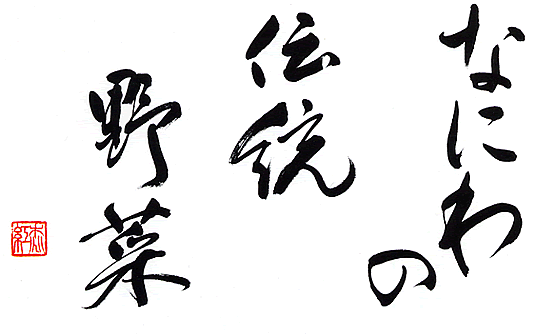 なにわの
伝統
野菜